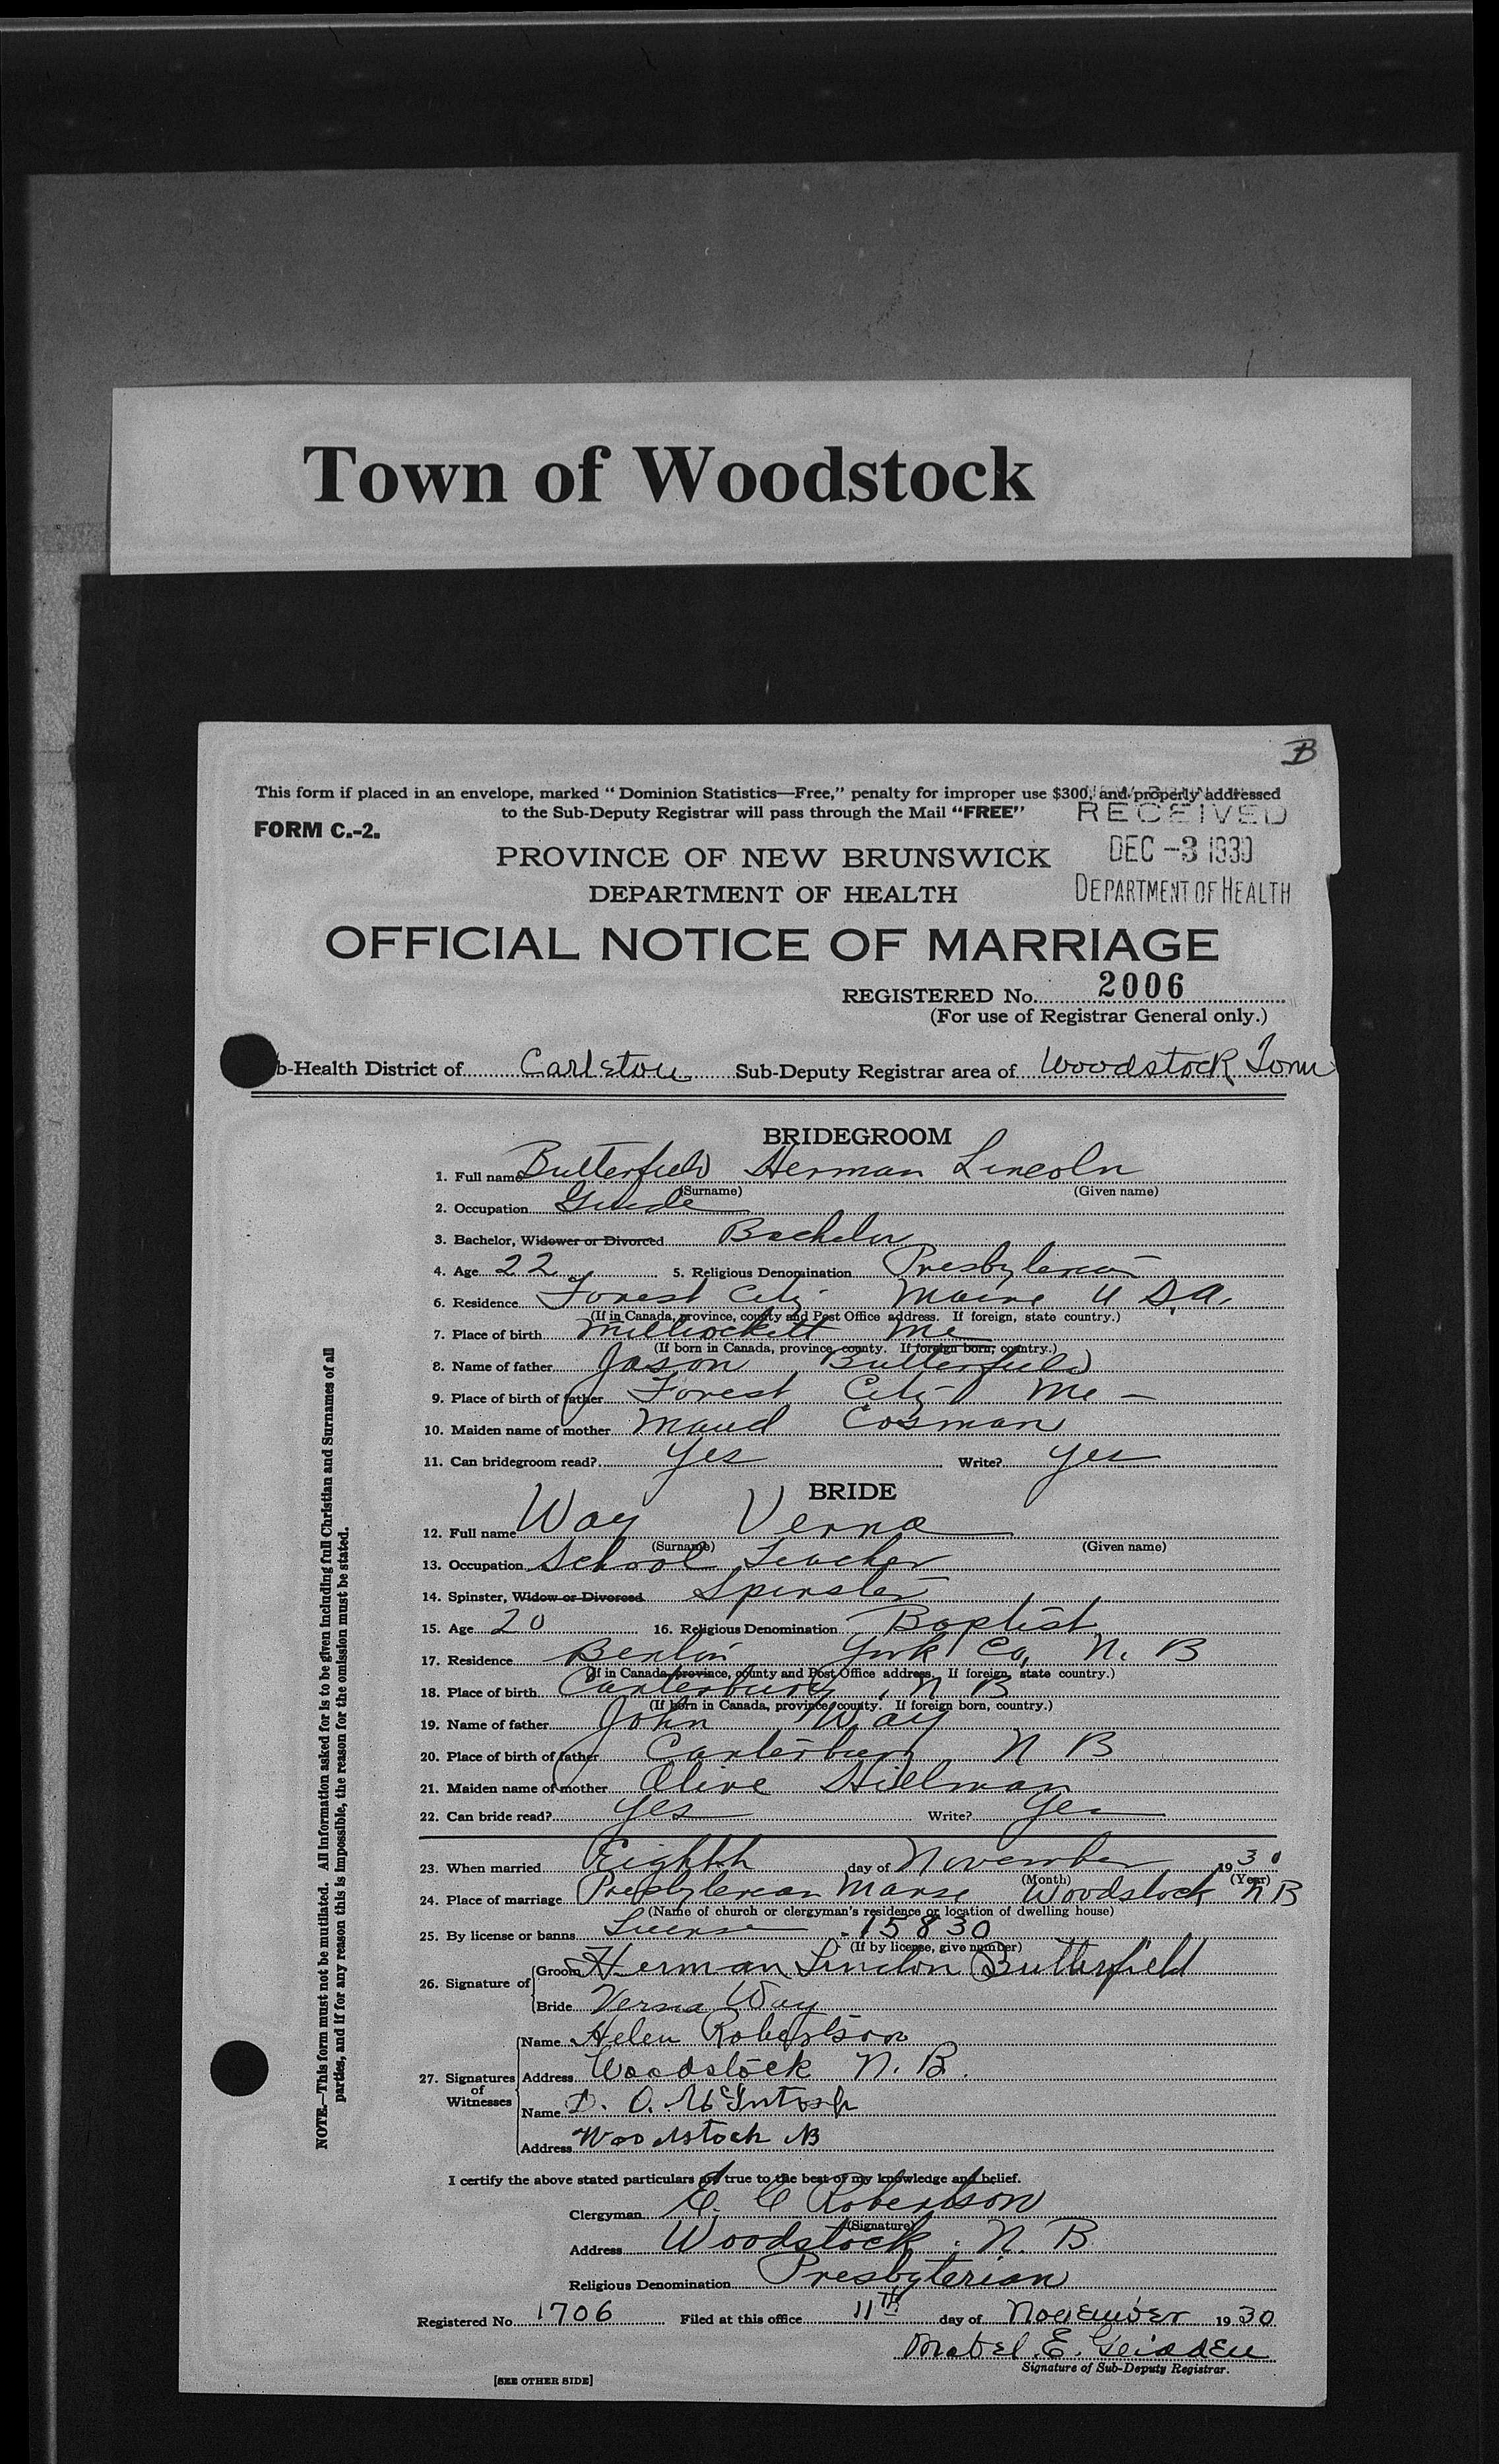 Town of Woodstock
B
This form if placed in an envelope, marked “ Dominion Statistics—Free,” penalty for improper use $300, and properly addressed
to the Sub-Deputy Registrar will pass through the Mail “FREE”
RECEIVED
FORM C.-2.
DEC -3 1930
PROVINCE OF NEW BRUNSWICK
DEPARTMENT OF HEALTH
DEPARTMENT OF HEALTH
OFFICIAL NOTICE OF MARRIAGE
REGISTERED No. 2006
(For use of Registrar General only.)
b-Health District of Carleton Sub-Deputy Registrar area of Woodstock Town
BRIDEGROOM
1. Full name Butterfield Herman Lincoln
(Surname) (Given name)
2. Occupation Guide
3. Bachelor, Widower or Divorced Bachelor
4. Age 22 5. Religious Denomination Presbyterian
6. Residence Forest City Maine U S.A.
(If in Canada, province, county and Post Office address. If foreign, state country.)
7. Place of birth Millinockett Me
(If born in Canada, province, county. If foreign born, country.)
8. Name of father Jason Butterfield
9. Place of birth of father Forest City Me —
10. Maiden name of mother Maud Cosman
11. Can bridegroom read? Yes Write? Yes
BRIDE
12. Full name Way Verna
(Surname) (Given name)
13. Occupation School Teacher
14. Spinster, Widow or Divorced Spinster
15. Age 20 16. Religious Denomination Baptist
17. Residence Benton York Co, N. B
(If in Canada, province, county and Post Office address. If foreign, state country.)
18. Place of birth Canterbury, N B
(If born in Canada, province, county. If foreign born, country.)
19. Name of father John Way
20. Place of birth of father Canterbury N B
21. Maiden name of mother Olive Hillman
22. Can bride read? Yes Write? Yes
23. When married Eighth day of November 1930
(Month) (Year)
24. Place of marriage Presbyterian Manse Woodstock N B
(Name of church or clergyman's residence or location of dwelling house)
25. By license or banns License - 15830
(If by license, give number)
26. Signature of Groom Herman Lincoln Butterfield
Bride Verna Way
27. Signatures of Witnesses Name Helen Robertson
Address Woodstock N. B.
Name D. O. McIntosh
Address Woodstock NB
I certify the above stated particulars are true to the best of my knowledge and belief.
Clergyman E. C Robertson
(Signature)
Address Woodstock. N. B
Religious Denomination Presbyterian
Registered No. 1706 Filed at this office 11TH day of November 1930
Mabel. E.
Signature of Sub-Deputy Registrar.
[SEE OTHER SIDE]
NOTE.—This form must not be mutilated. All information asked for is to be given including full Christian and Surnames of all
parties, and if for any reason this is impossible, the reason for the omission must be stated.